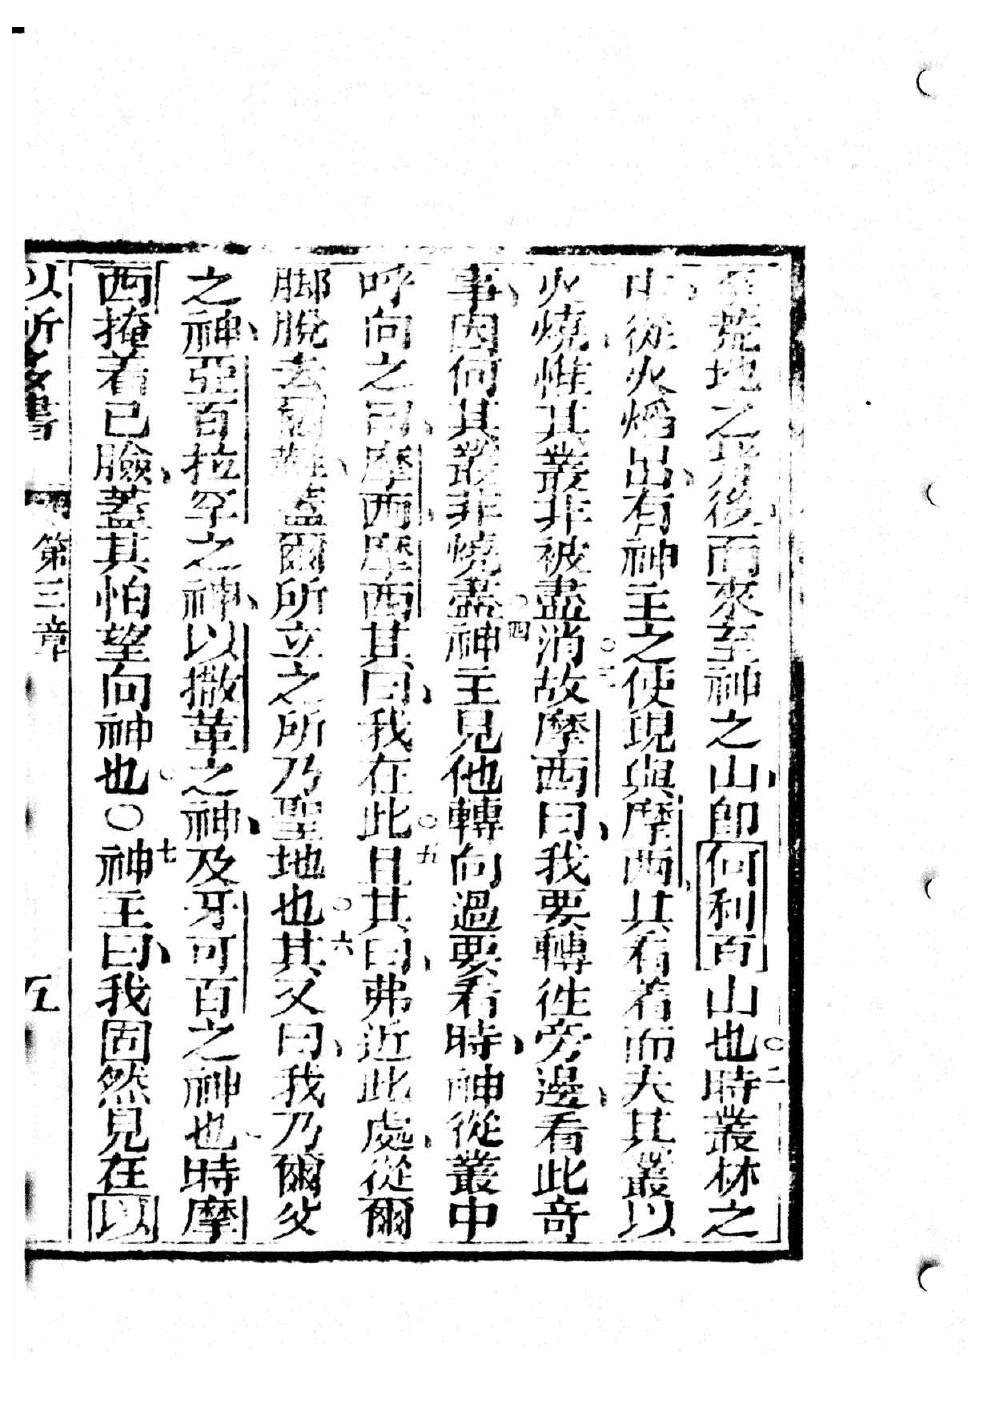 至荒地之背後、而來至神之山、卽何利百山也○二時叢林之
中、從火焰出、有神主之使○三現與摩西、其看着而夫其叢以
火燒、惟其叢非被盡消故摩西曰、我要轉徃旁邊、看此奇
事、因何其叢非燒盡○四神主見他轉向過要看時、神從叢中
呼向之曰、摩西、摩西、其曰、我在此○五且其曰、弗近此處、從爾
脚脫去爾鞋、蓋爾所立之所乃聖地也○六其又曰、我乃爾父
之神、亞百拉罕之神、以撒革之神、及牙可百之神也、時摩
西掩着已臉、蓋其怕望向神也。○七神主曰、我固然見在以
以所多書 第三章 五